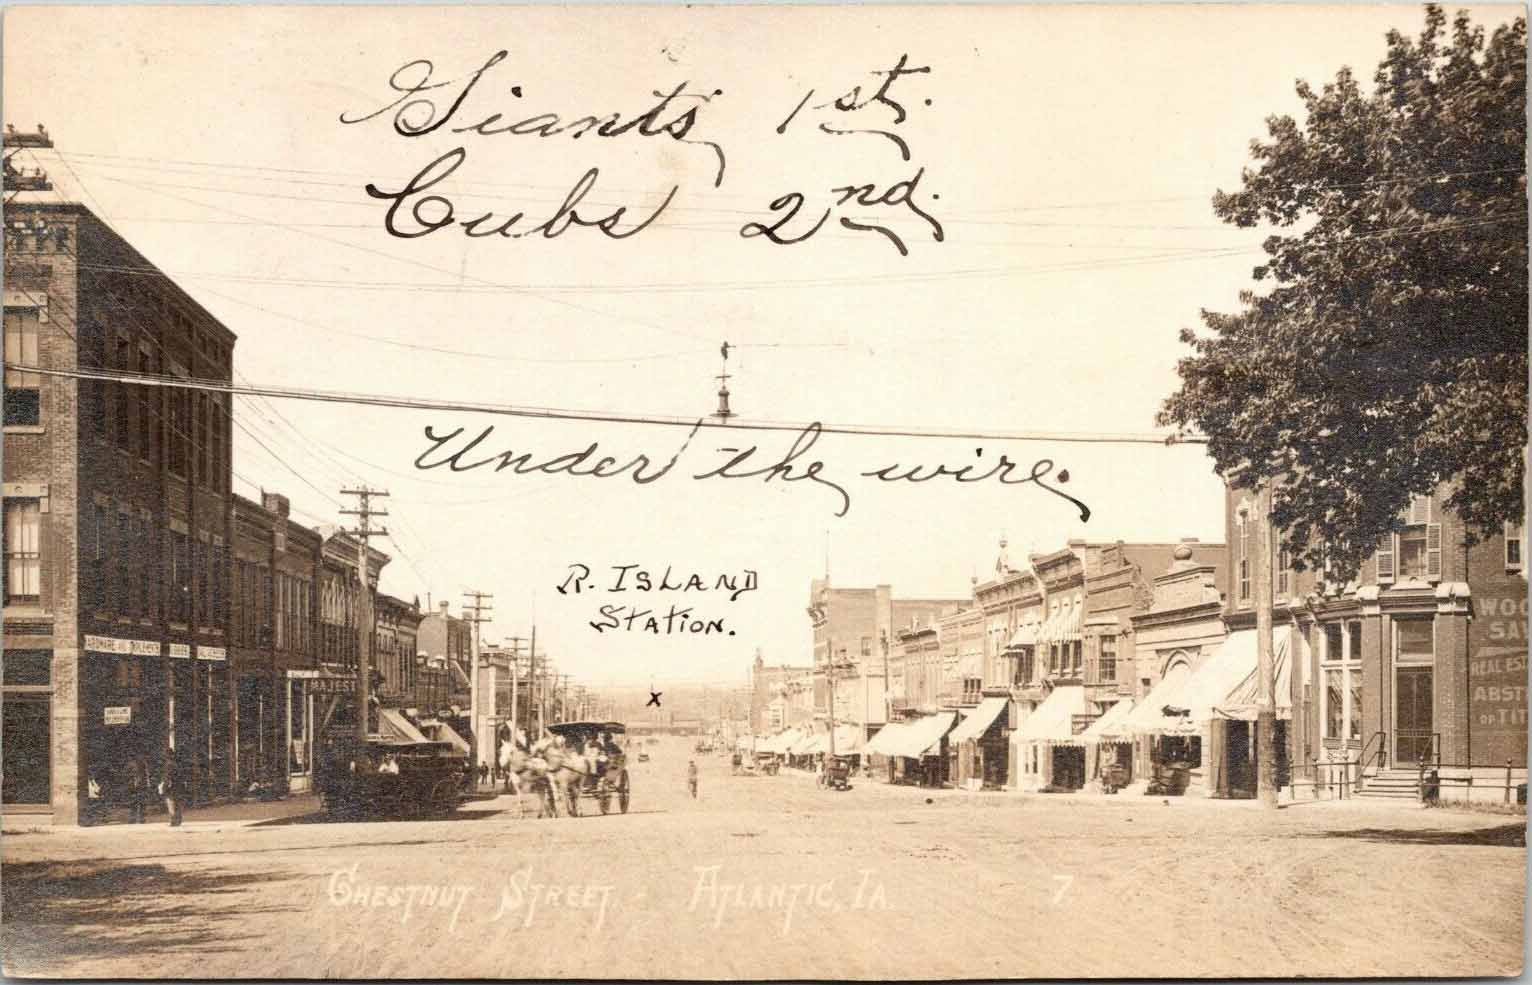 Giants 1st.
Cubs 2nd.
Under the wire.
R. ISLAND
STATION.
x
HARDWARE AND IMPLEMENTS
MAJEST
WOO
SA
REAL EST
ABST
OF TIT
CHESTNUT STREET. - ATLANTIC, IA. 7.